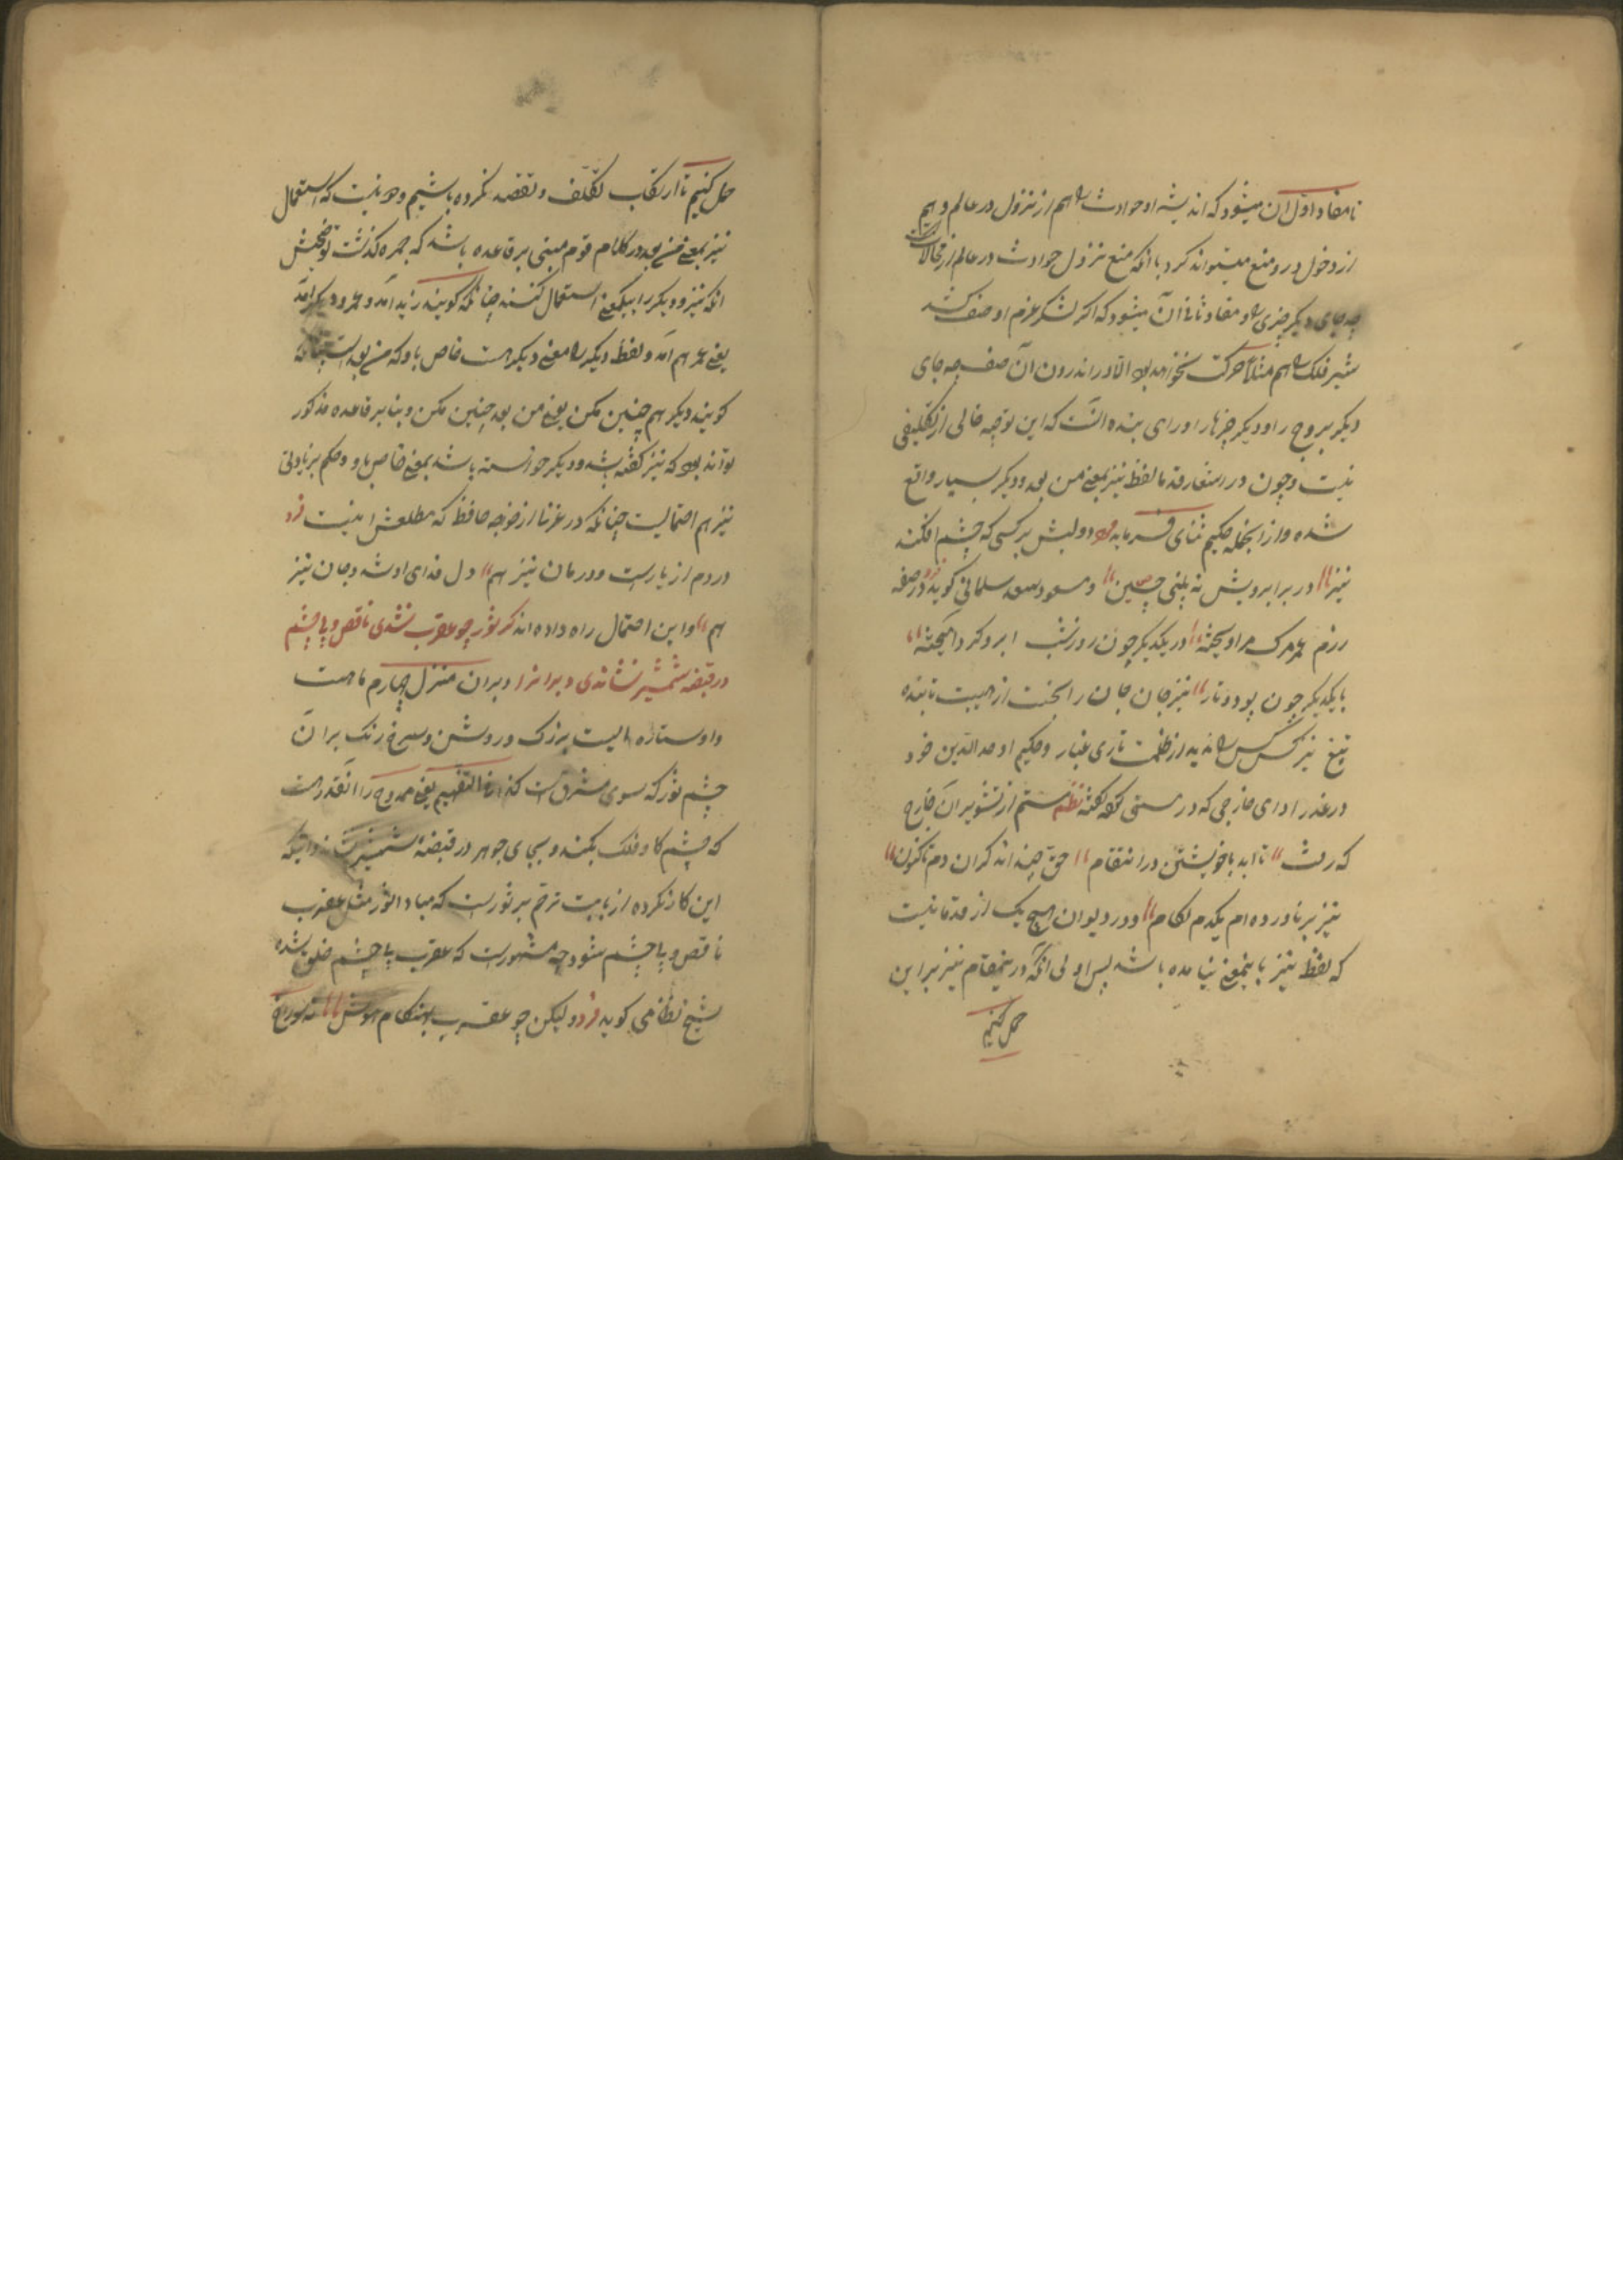 تا مفاد اول آن میشود که اندیشه او حوادث را هم از نزول در عالم و هم
از دخول درو منع میتواند کرد با آنکه منع نزول حوادث در عالم از محالات
چه جای دیگر چیزی و مفاد ثانی آن میشود که اگر لشکر عزم او صف کشد
شیر فلک را هم مثلا حرکت نخواهد بود الا در اندرون آن صف چه جای
دیگر بروج را و دیگر چیزها را و رای بنده آنست که این توجیه خالی از تکلیفی
نیست و چون در اشعار قدما لفظ نیز بمعنی من بعد و دیگر بسیار واقع
شده و از آنجمله حکیم ثنای فرماید دولبش بر کسی که چشم افکند
نیز در برابرویش نه بلنی چین و مسعود سعد سلمانی گوید در صفه
رزم عمر مرک مرا ویخته در یکدیگر چون روز شب ابر و کرد آمیخته
با یکدیگر چون پود و تار نیز جان جان را نجست از هیبت تابنده
تیغ نیز کس کس را ندید از ظلمت تاری غبار و حکیم اوحدالدین خود
در عذر ادای خارجی که در مستی گفته نظم ستم از تشویر آن خارج
که رفت تا ابد با خویشتن در انتقام حق چیند اند کران دم تاکنون
نیز بر ناورده ام یکدم لکام و در دیوان هیچ یک از قدما نیست
که لفظ نیز باینمعنی نیامده باشد پس اولی آنکه درینمقام نیز بر این
حمل کنیم
حمل کنیم تا ارتکاب تکلف و تقصد نکرده باشیم و نیست که استعمال
نیز بمعنی من بعد در کلام قوم مبنی بر قاعده باشد که جمره گذشت توضیحش
آنکه نیز و دیگر را بیکمعنی استعمال کنند چنانکه گویند زید آمد و عمرو دیگر آمد
یعنی عمر هم آمد و لفظ دیگر را معنی دیگر هست خاص باو که من بعد است چنانکه
گویند دیگر هم چنین مکن یعنی من بعد چنین مکن و بنا بر قاعده مذکور
تواند بود که نیز گفته باشد و دیگر خواسته باشد بمعنی خاص باو و حکم بر زیادتی
نیز هم احتمالیست چنانکه در غزنا از خوجه حافظ که مطلعش اینست فرد
دردم از یارست و درمان نیز هم دل فدای او شد و جان نیز
هم و این احتمال راه داده اند کر ثور چو عقرب نشدی ناقص و بی چشم
در قبضه شمشیر نشاندی دبرانرا دبران منزل چهارم ماهست
و او ستاره ایست بزرک و روشن و سرخ رنک بر آن
چشم ثور که سوی مشرق است کذا فی التفهیم یعنی ممدوح را آنقدر هست
که چشم کاو فلک بکند و بجای جوهر در قبضه شمشیر نشاند و اینکه
این کار نکرده از بابت ترحم بر ثورست که مبادا ثور مثل عقرب
ناقص و بی چشم شود چه مشهورست که عقرب بی چشم خلق شده
شیخ نظامی گوید فرد ولیکن چو عقرب بهنکام هوش نه سوراخ